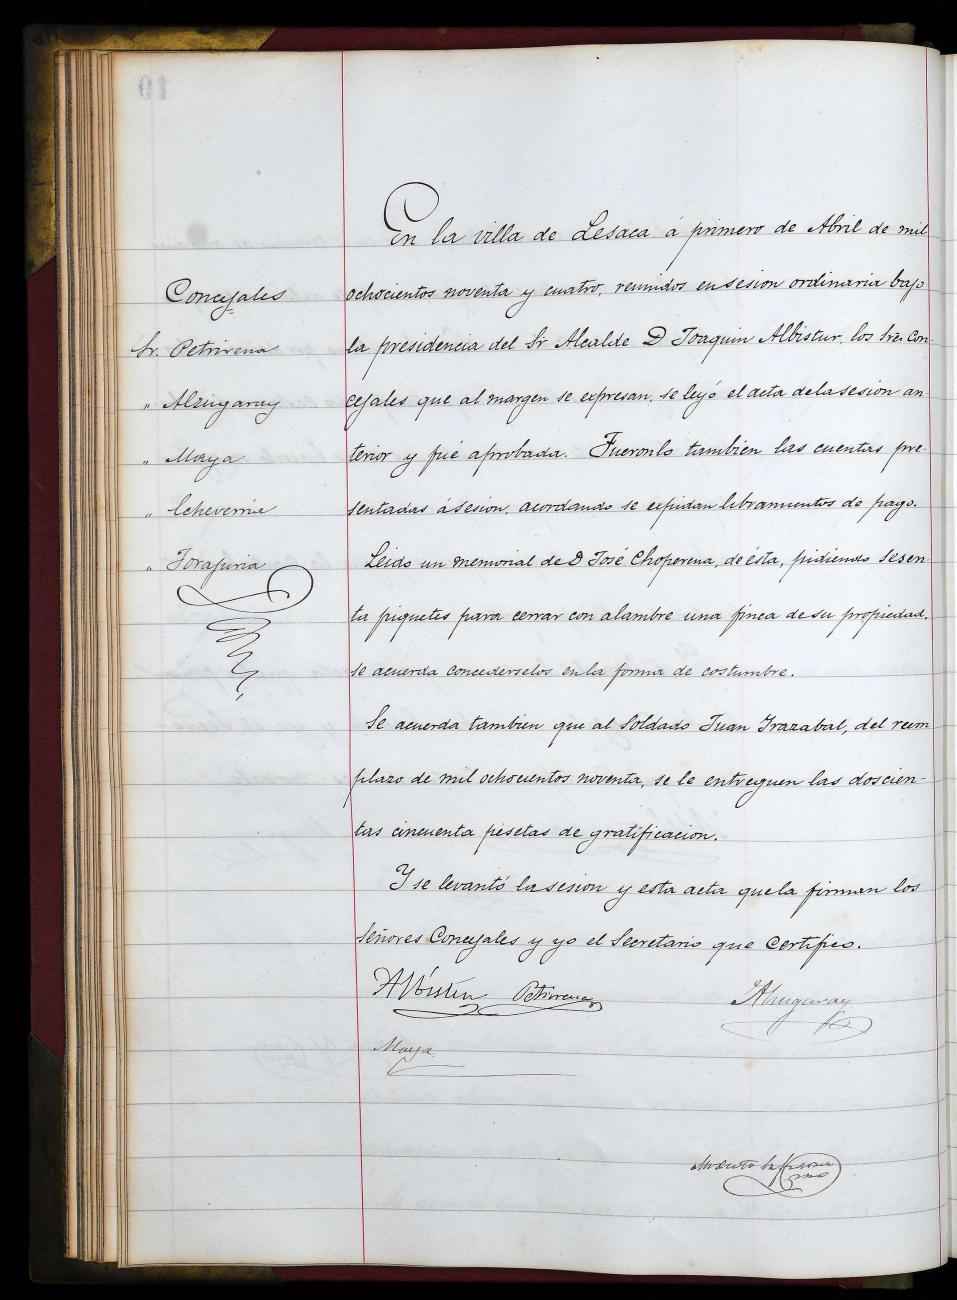 Concejales
Sr. Petrirena
" Alzugaray
" Maya
" Echeverria
" Irazuria
En la villa de Lesaca á primero de Abril de mil
ochocientos noventa y cuatro, reunidos en sesion ordinaria bajo
la presidencia del Sr Alcalde D Joaquin Albistur, los Sres Con-
cejales que al margen se expresan, se leyó el acta de la sesion an-
terior y fué aprobada. Fueronlo tambien las cuentas pre-
sentadas á sesion, acordando se expidan libramientos de pago.
Leido un memorial de D José Choperena, de ésta, pidiendo sesen-
ta piquetes para cerrar con alambre una finca de su propiedad,
se acuerda concederselos en la forma de costumbre.
Se acuerda tambien que al Soldado Juan Irazabal, del reem
plazo de mil ochocientos noventa, se le entreguen las doscien-
tas cincuenta pesetas de gratificacion.
Y se levantó la sesion y esta acta que la firman los
Señores Concejales y yo el Secretario que certifico.
Albistur Petrirena Alzugaray
Maya